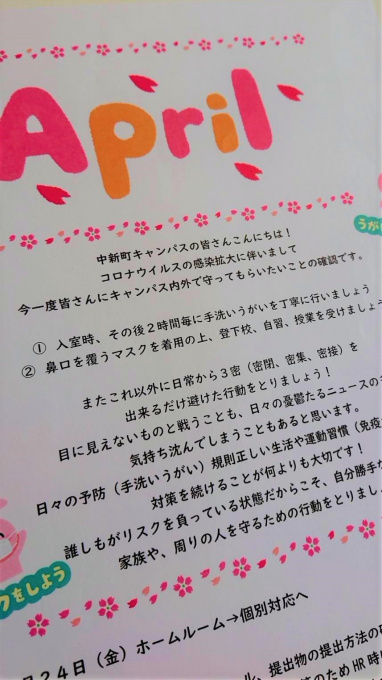 April
中新町キャンパスの皆さんこんにちは！
コロナウイルスの感染拡大に伴いまして
今一度皆さんにキャンパス内外で守ってもらいたいことの確認です。
うが
① 入室時、その後２時間毎に手洗いうがいを丁寧に行いましょう
② 鼻口を覆うマスクを着用の上、登下校、自習、授業を受けましょう
またこれ以外に日常から３密（密閉、密集、密接）を
出来るだけ避けた行動をとりましょう！
目に見えないものと戦うことも、日々の憂鬱たるニュースの
気持ち沈んでしまうこともあると思います。
日々の予防（手洗いうがい）規則正しい生活や運動習慣（免疫
対策を続けることが何よりも大切です！
誰しもがリスクを負っている状態だからこそ、自分勝手な
家族や、周りの人を守るための行動をとりましょ
クをしよう
月２４日（金）ホームルーム→個別対応へ
ル、提出物の提出方法の
のため HR 時